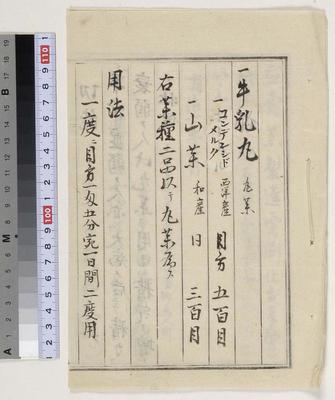 一牛乳丸 丸薬
一コンデンスドメルク 西洋産 目方 五百目
一山薬 和産 目 三百目
右薬種二品以テ丸薬為ス
用法
一度ニ目方一匁五分宛一日間二度用